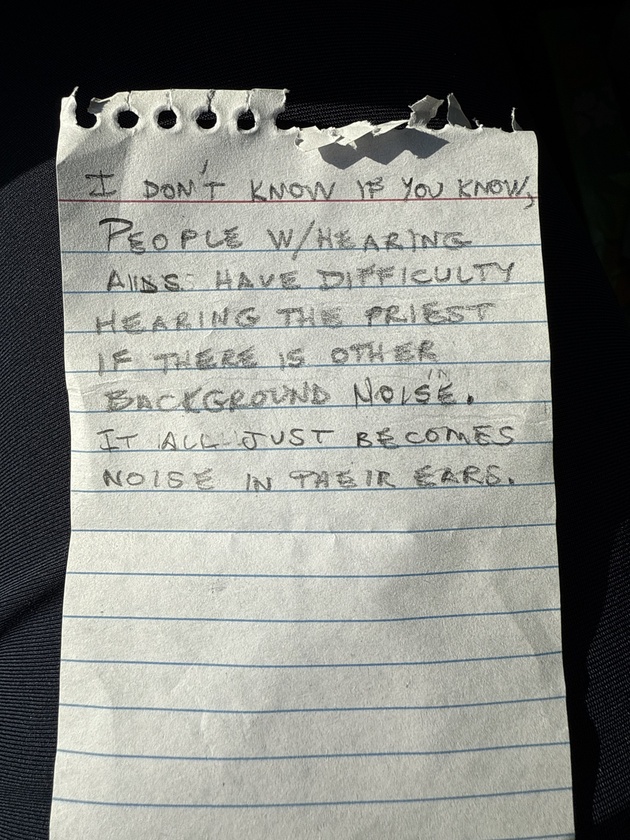 I DON'T KNOW IF YOU KNOW,
PEOPLE W/HEARING
AIDS HAVE DIFFICULTY
HEARING THE PRIEST
IF THERE IS OTHER
BACKGROUND NOISE.
IT ALL JUST BECOMES
NOISE IN THEIR EARS.